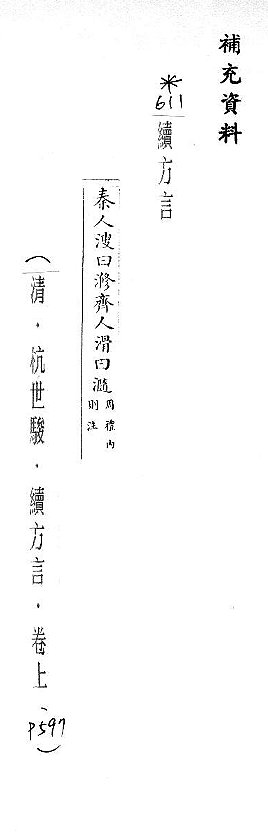 補充資料
*611
續方言
秦人溲曰滫齊人滑曰瀡
周禮內
則注
(清．杭世駿．續方言．卷上、P597)